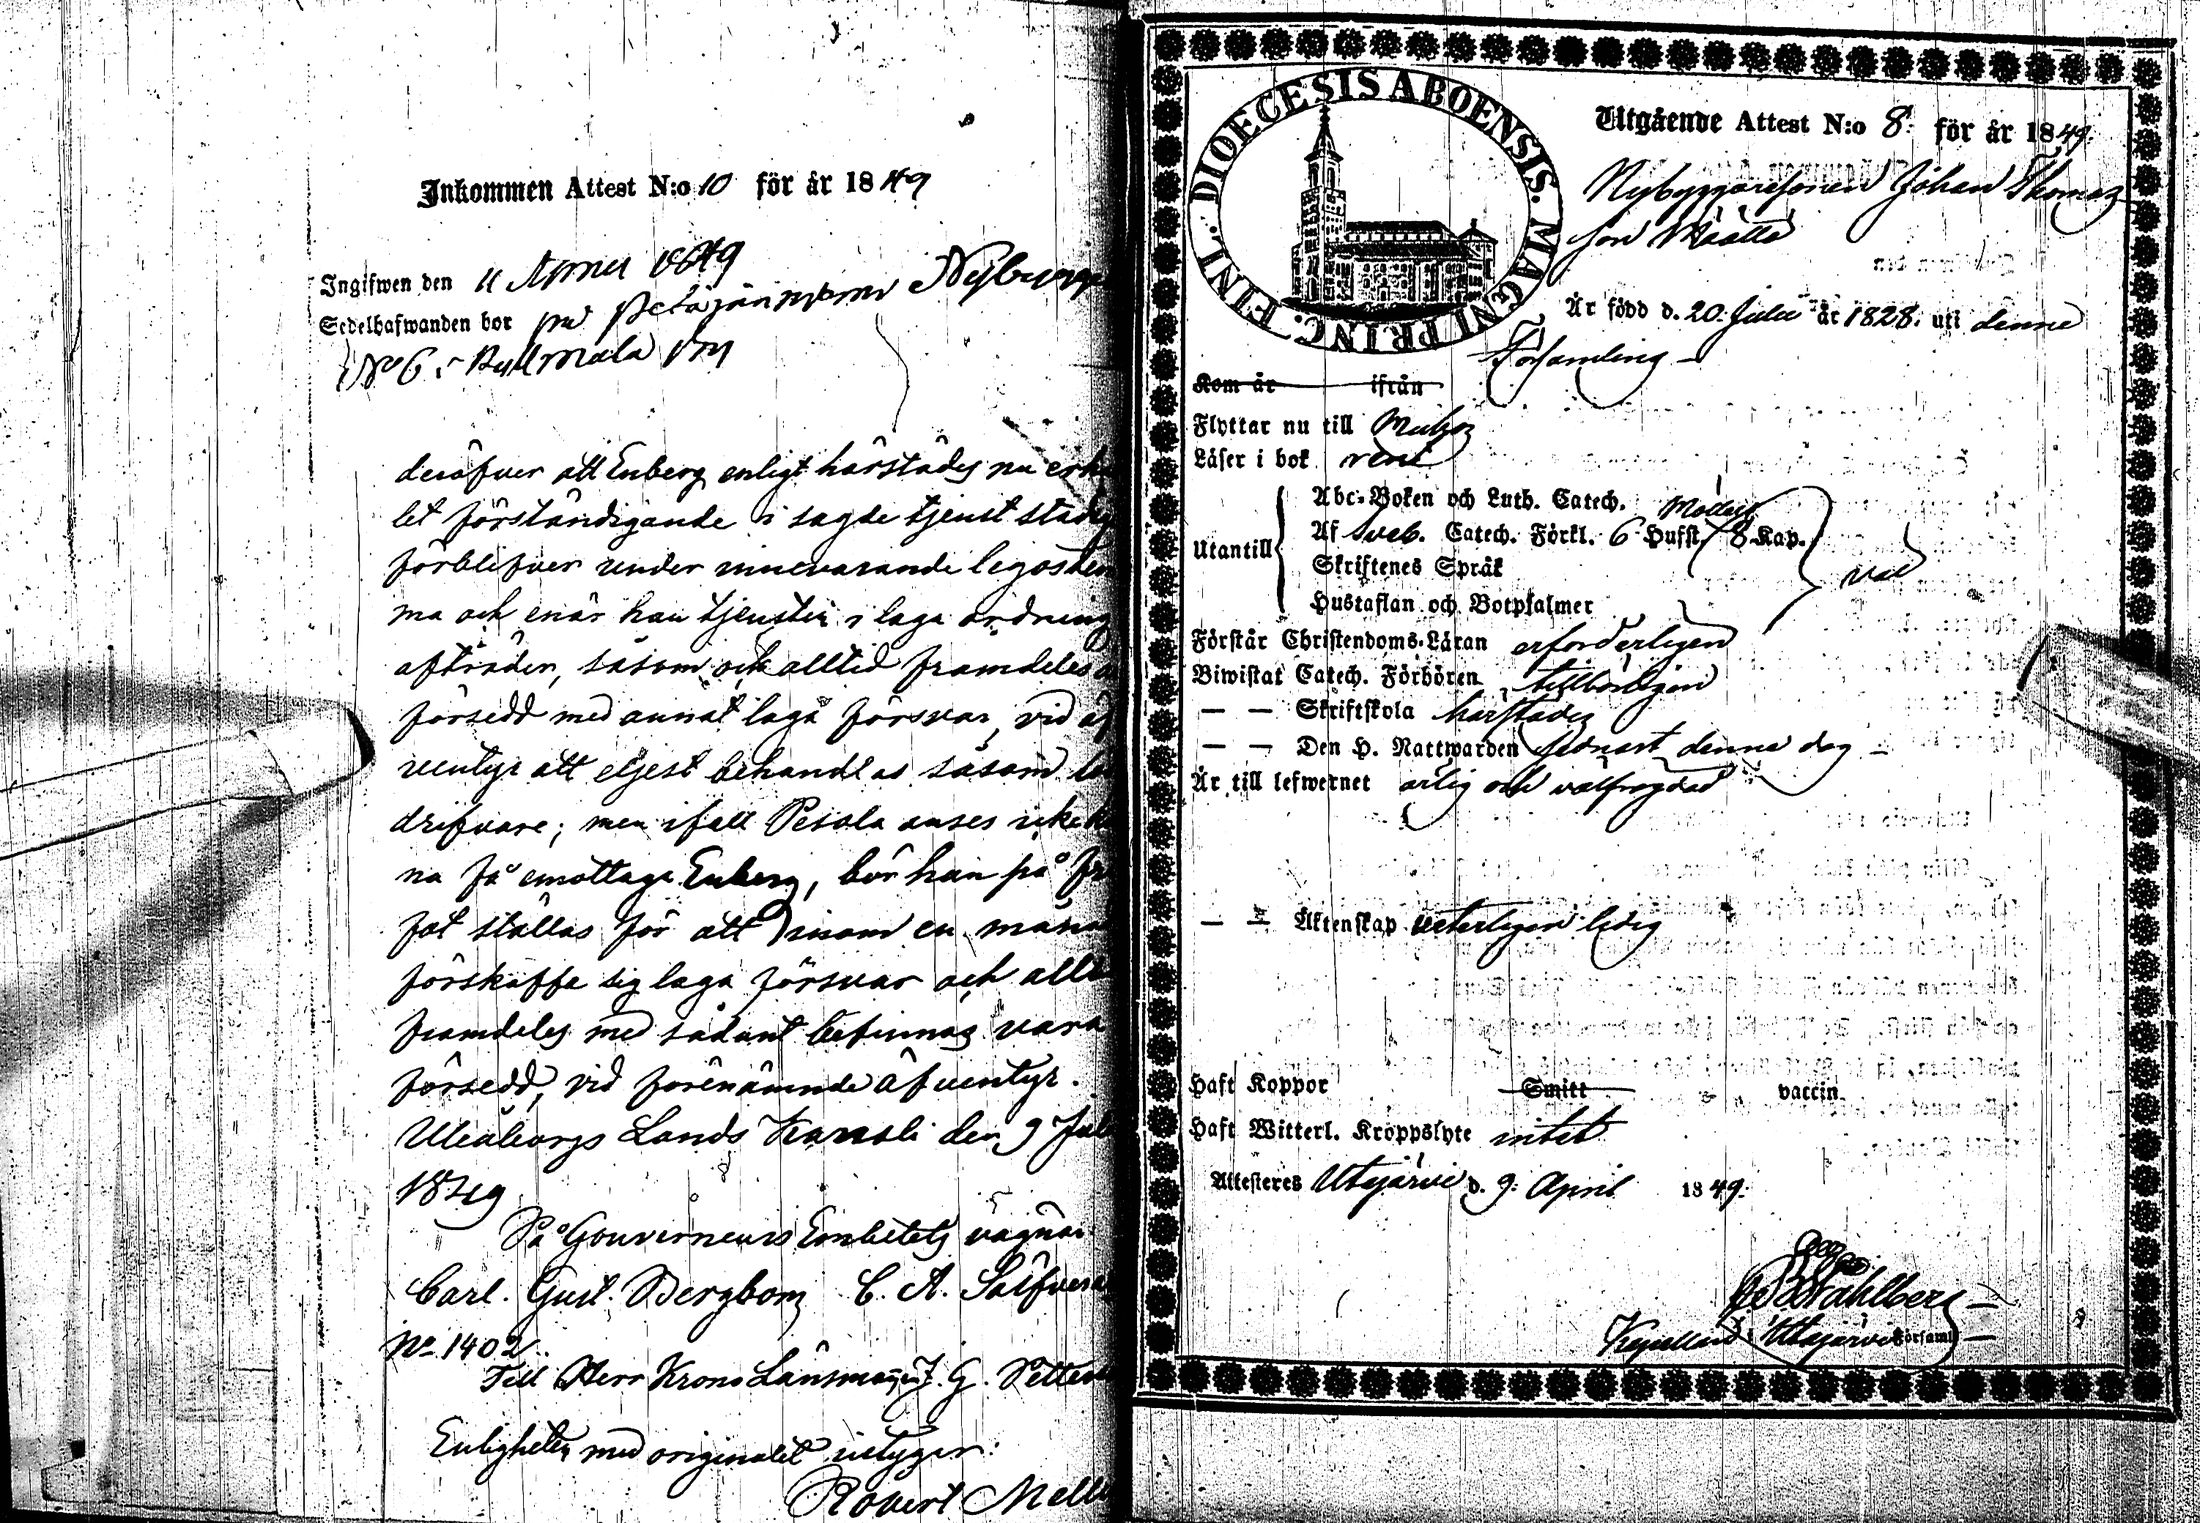 Inkommen Attest N:o 10 för år 1849
Ingifwen den 11 April 1849
Sedelhafwanden bor på Petäjäniemi Nybygge
N° 6 i
deröfver att Enberg enligt härstädes nu erhå
let förständigande i sagde tjenst städse
förblifver under innevarande legostäm
ma och enär han tjensten i laga ordning
afträder, såsom ock alltid framdeles
försedd med annat laga försvar, vid äf
ventyr att eljest behandlas såsom lös
drifvare; men ifall Pesola anses icke k
na få emottaga Enberg, bör han på fri
fot ställas för att inom en månad
förskaffa sig laga försvar och allt
framdeles med sådant befinnas vara
försedd, vid förenämnde äfventyr.
Uleåborgs Lands Kansli den 9 Jul
1849
På Gouverneurs Embetets vägnar
Carl. Gust. Bergbom C. A.
No. 1402.
Till Herr Krono Länsmannen J. G. Petters
Enligheten med originalet intygar:
Robert Mell
DIOECESIS ABOENSIS. MAGNI PRINC. FINL.
Utgående Attest N:o 8. för år 1849.
Nybyggaresonen Johan Thomas
son Määttä
Är född d. 20. Julii år 1828. uti denne
Församling
Kom år ifrån
Flyttar nu till Muhos
Läser i bok rent
Abc-Boken och Luth. Catech.
Utantill Af Sveb. Catech. Förkl. 6 Hufst. 8 Kap.
Skriftenes Språk
Hustaflan och Botpsalmer
väl
Förstår Christendoms-Läran erforderligen
Biwistat Catech. Förhören tillbörligen
— — Skriftskola härstädes
— — Den H. Nattwarden sednast denna dag
Är till lefwernet ärlig och välfrägdad
— — Äktenskap veterligen ledig
Haft Koppor Smitt vaccin
Haft Witterl. Kroppslyte intet
Attesteras Utajärvi d. 9. April 1849.
Wahlberg
Kapellan i Utajärvi Församl.